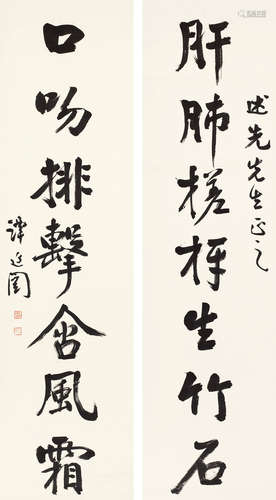 述先先生正之
肝肺槎枒生竹石
口吻排擊含風霜
譚延闓